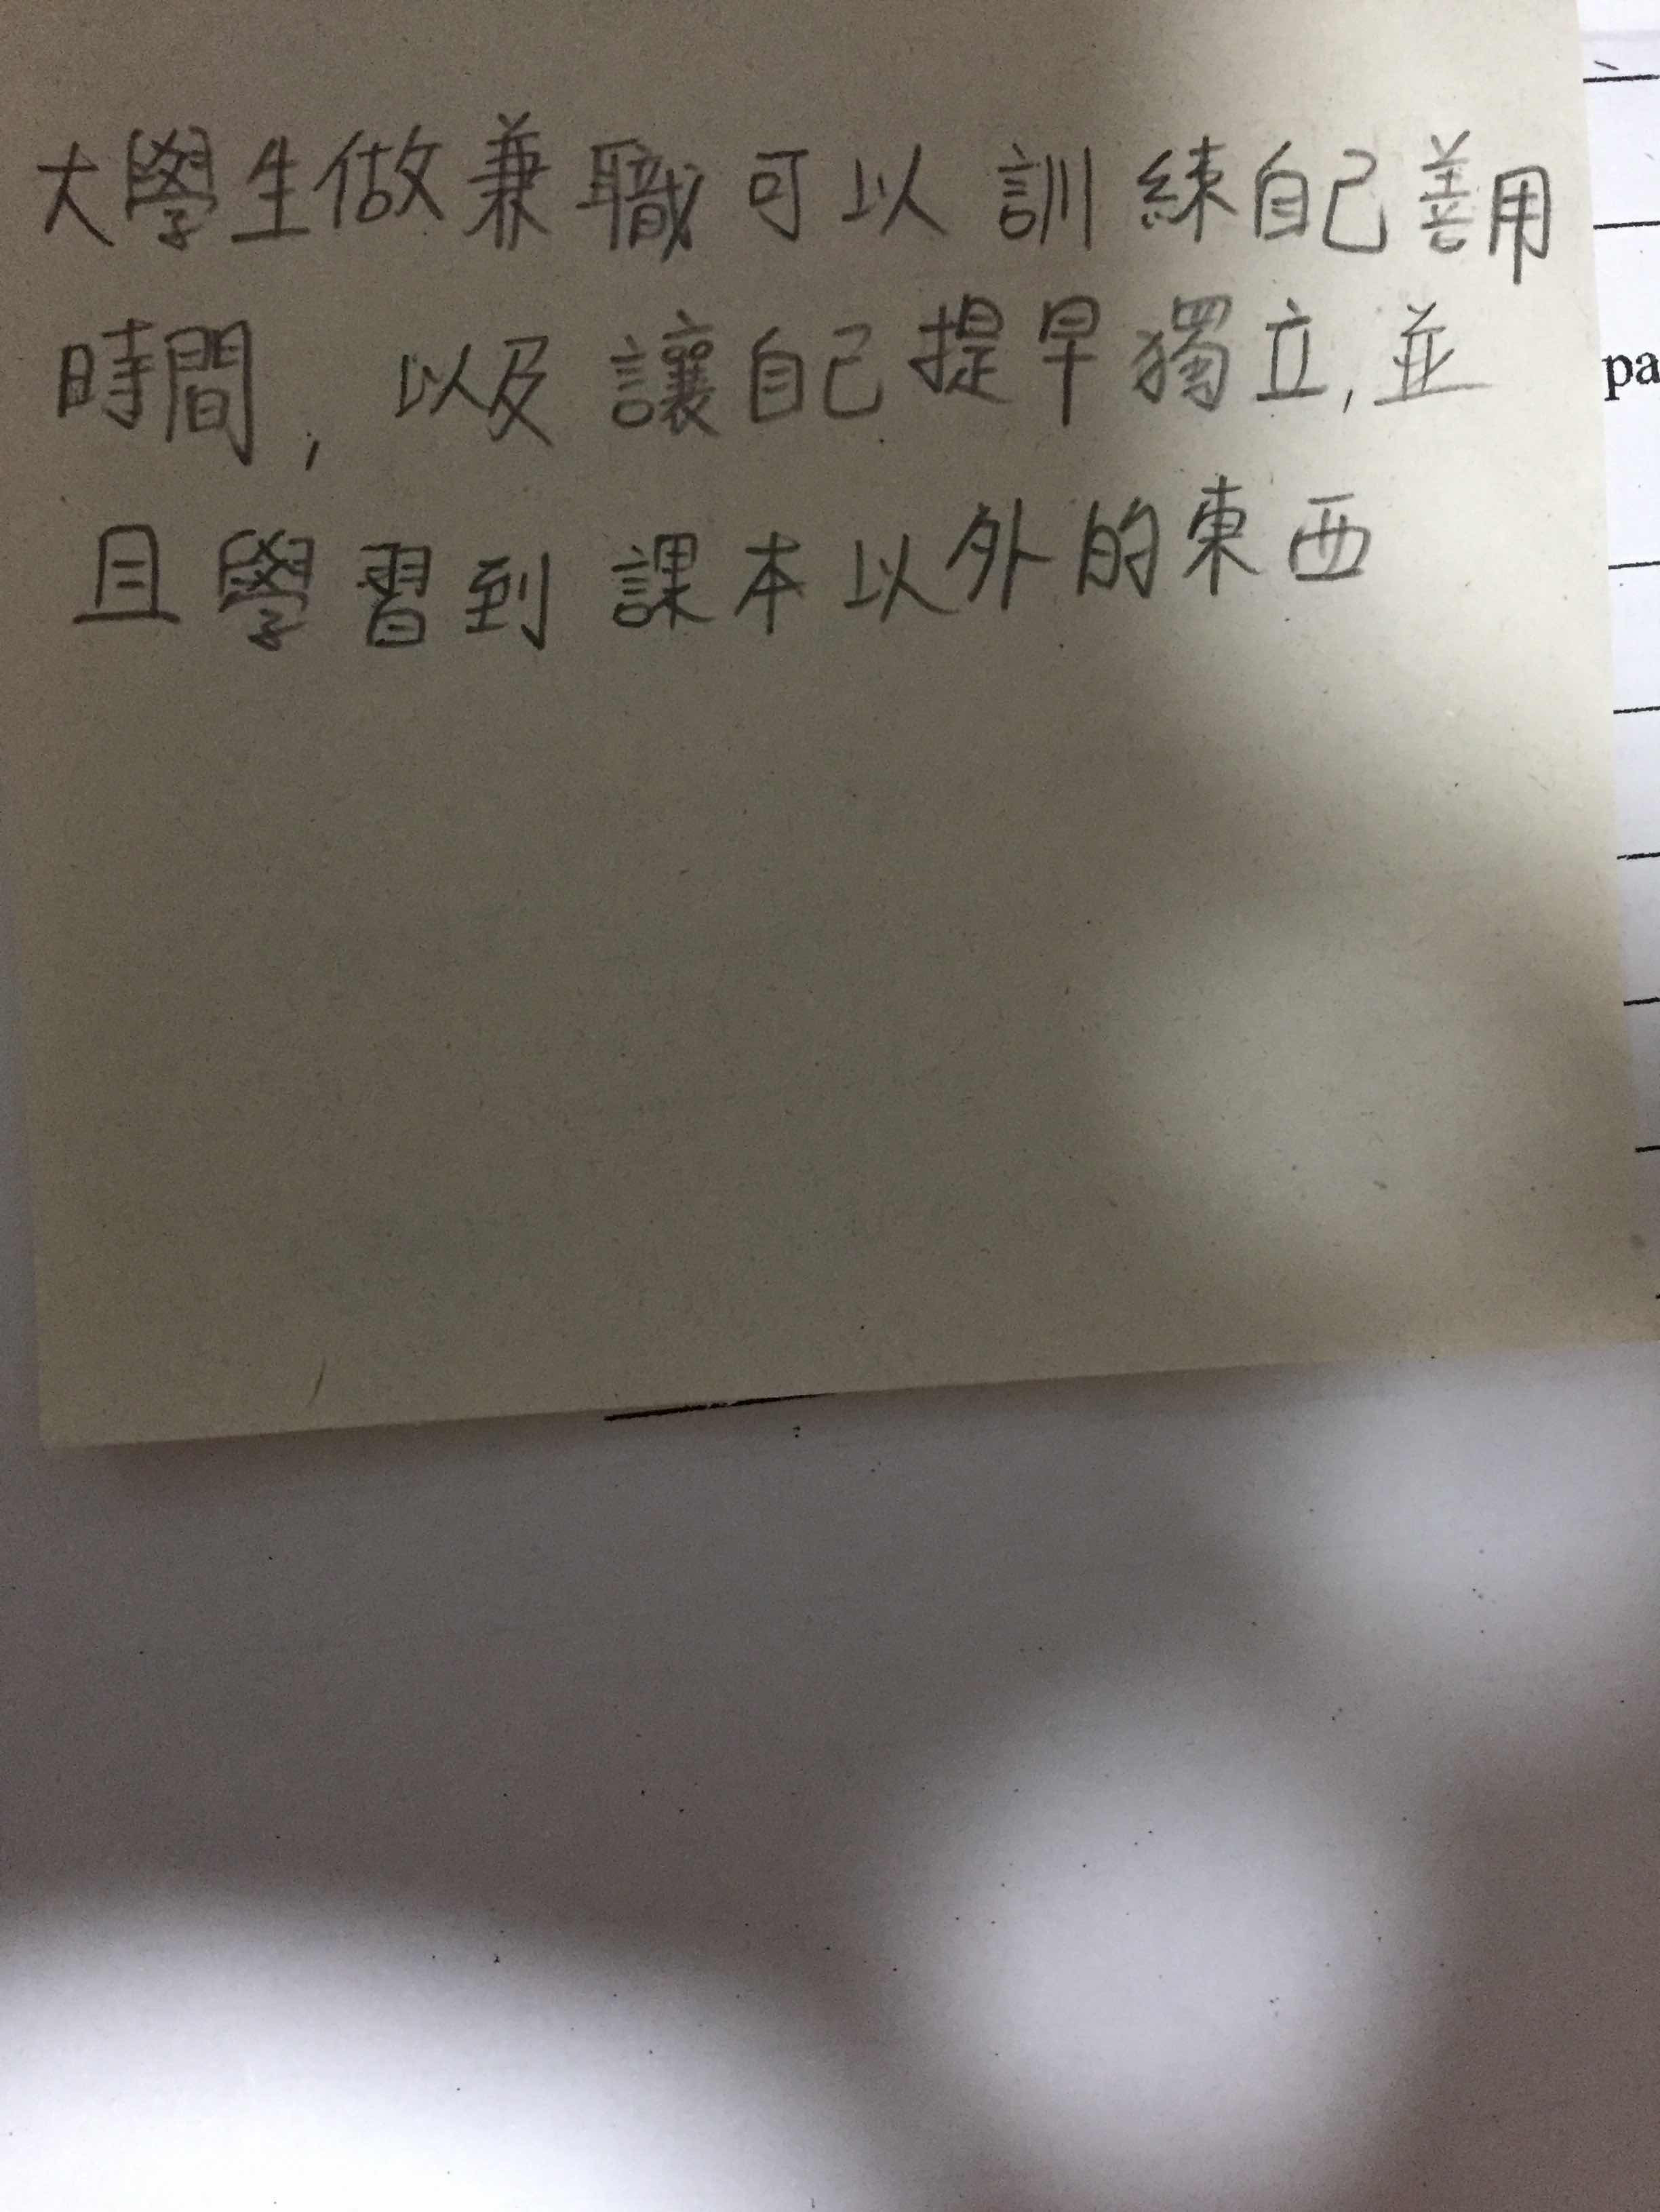 大學生做兼職可以訓練自己善用
時間, 以及讓自己提早獨立, 並
且學習到課本以外的東西
pa